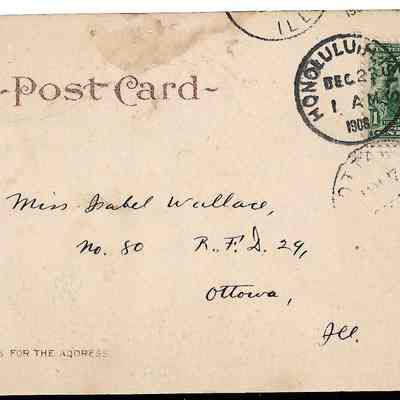 ILL
Post Card
HONOLULU
DEC 2
1 AM
1906
Miss Isabel Wallace,
No. 80 R.F.D. 29,
Ottowa,
Ill.
FOR THE ADDRESS